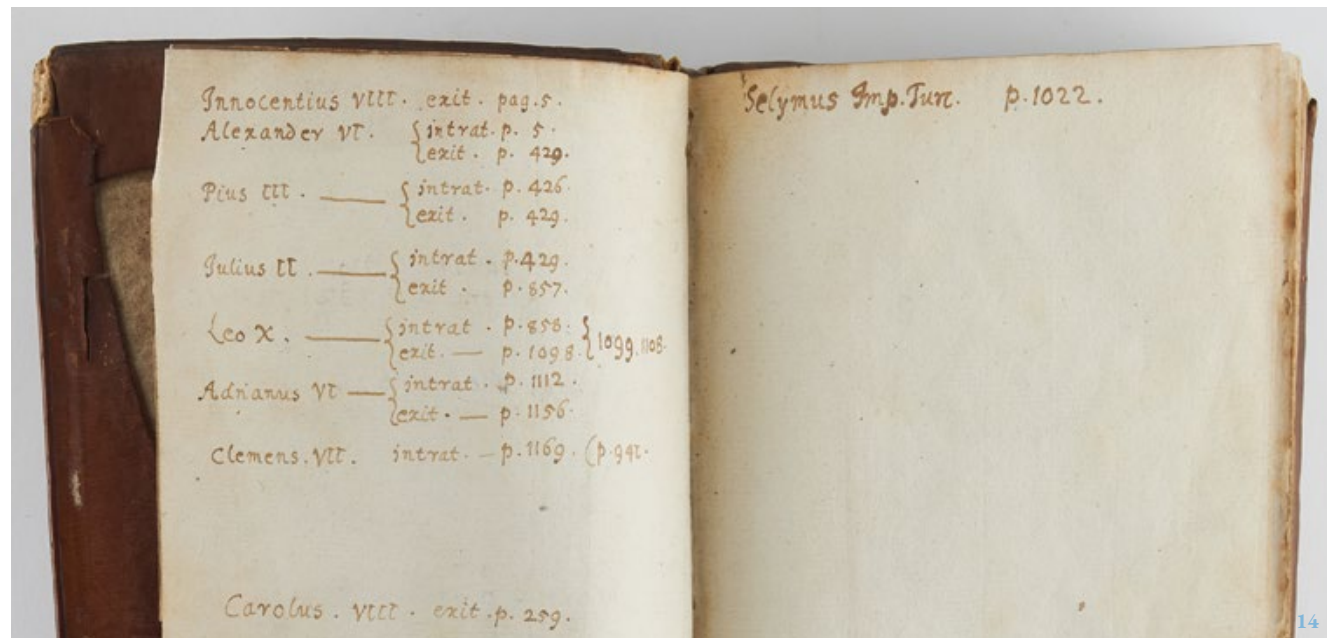 Innocentius VIII. exit. pag. 5.
Alexander VI. { intrat. p. 5.
{ exit. p. 429.
Pius III. — { intrat. p. 426.
{ exit. p. 429.
Julius II. — { intrat. p. 429.
{ exit. p. 857.
Leo X. — { intrat. p. 858.
{ exit. — p. 1098. { 1099. 1108.
Adrianus VI — { intrat. p. 1112.
{ exit. — p. 1156.
Clemens. VII. intrat. — p. 1169. (p. 941.
Carolus. VIII. exit. p. 259.
Selymus Imp. Turc. p. 1022.
14